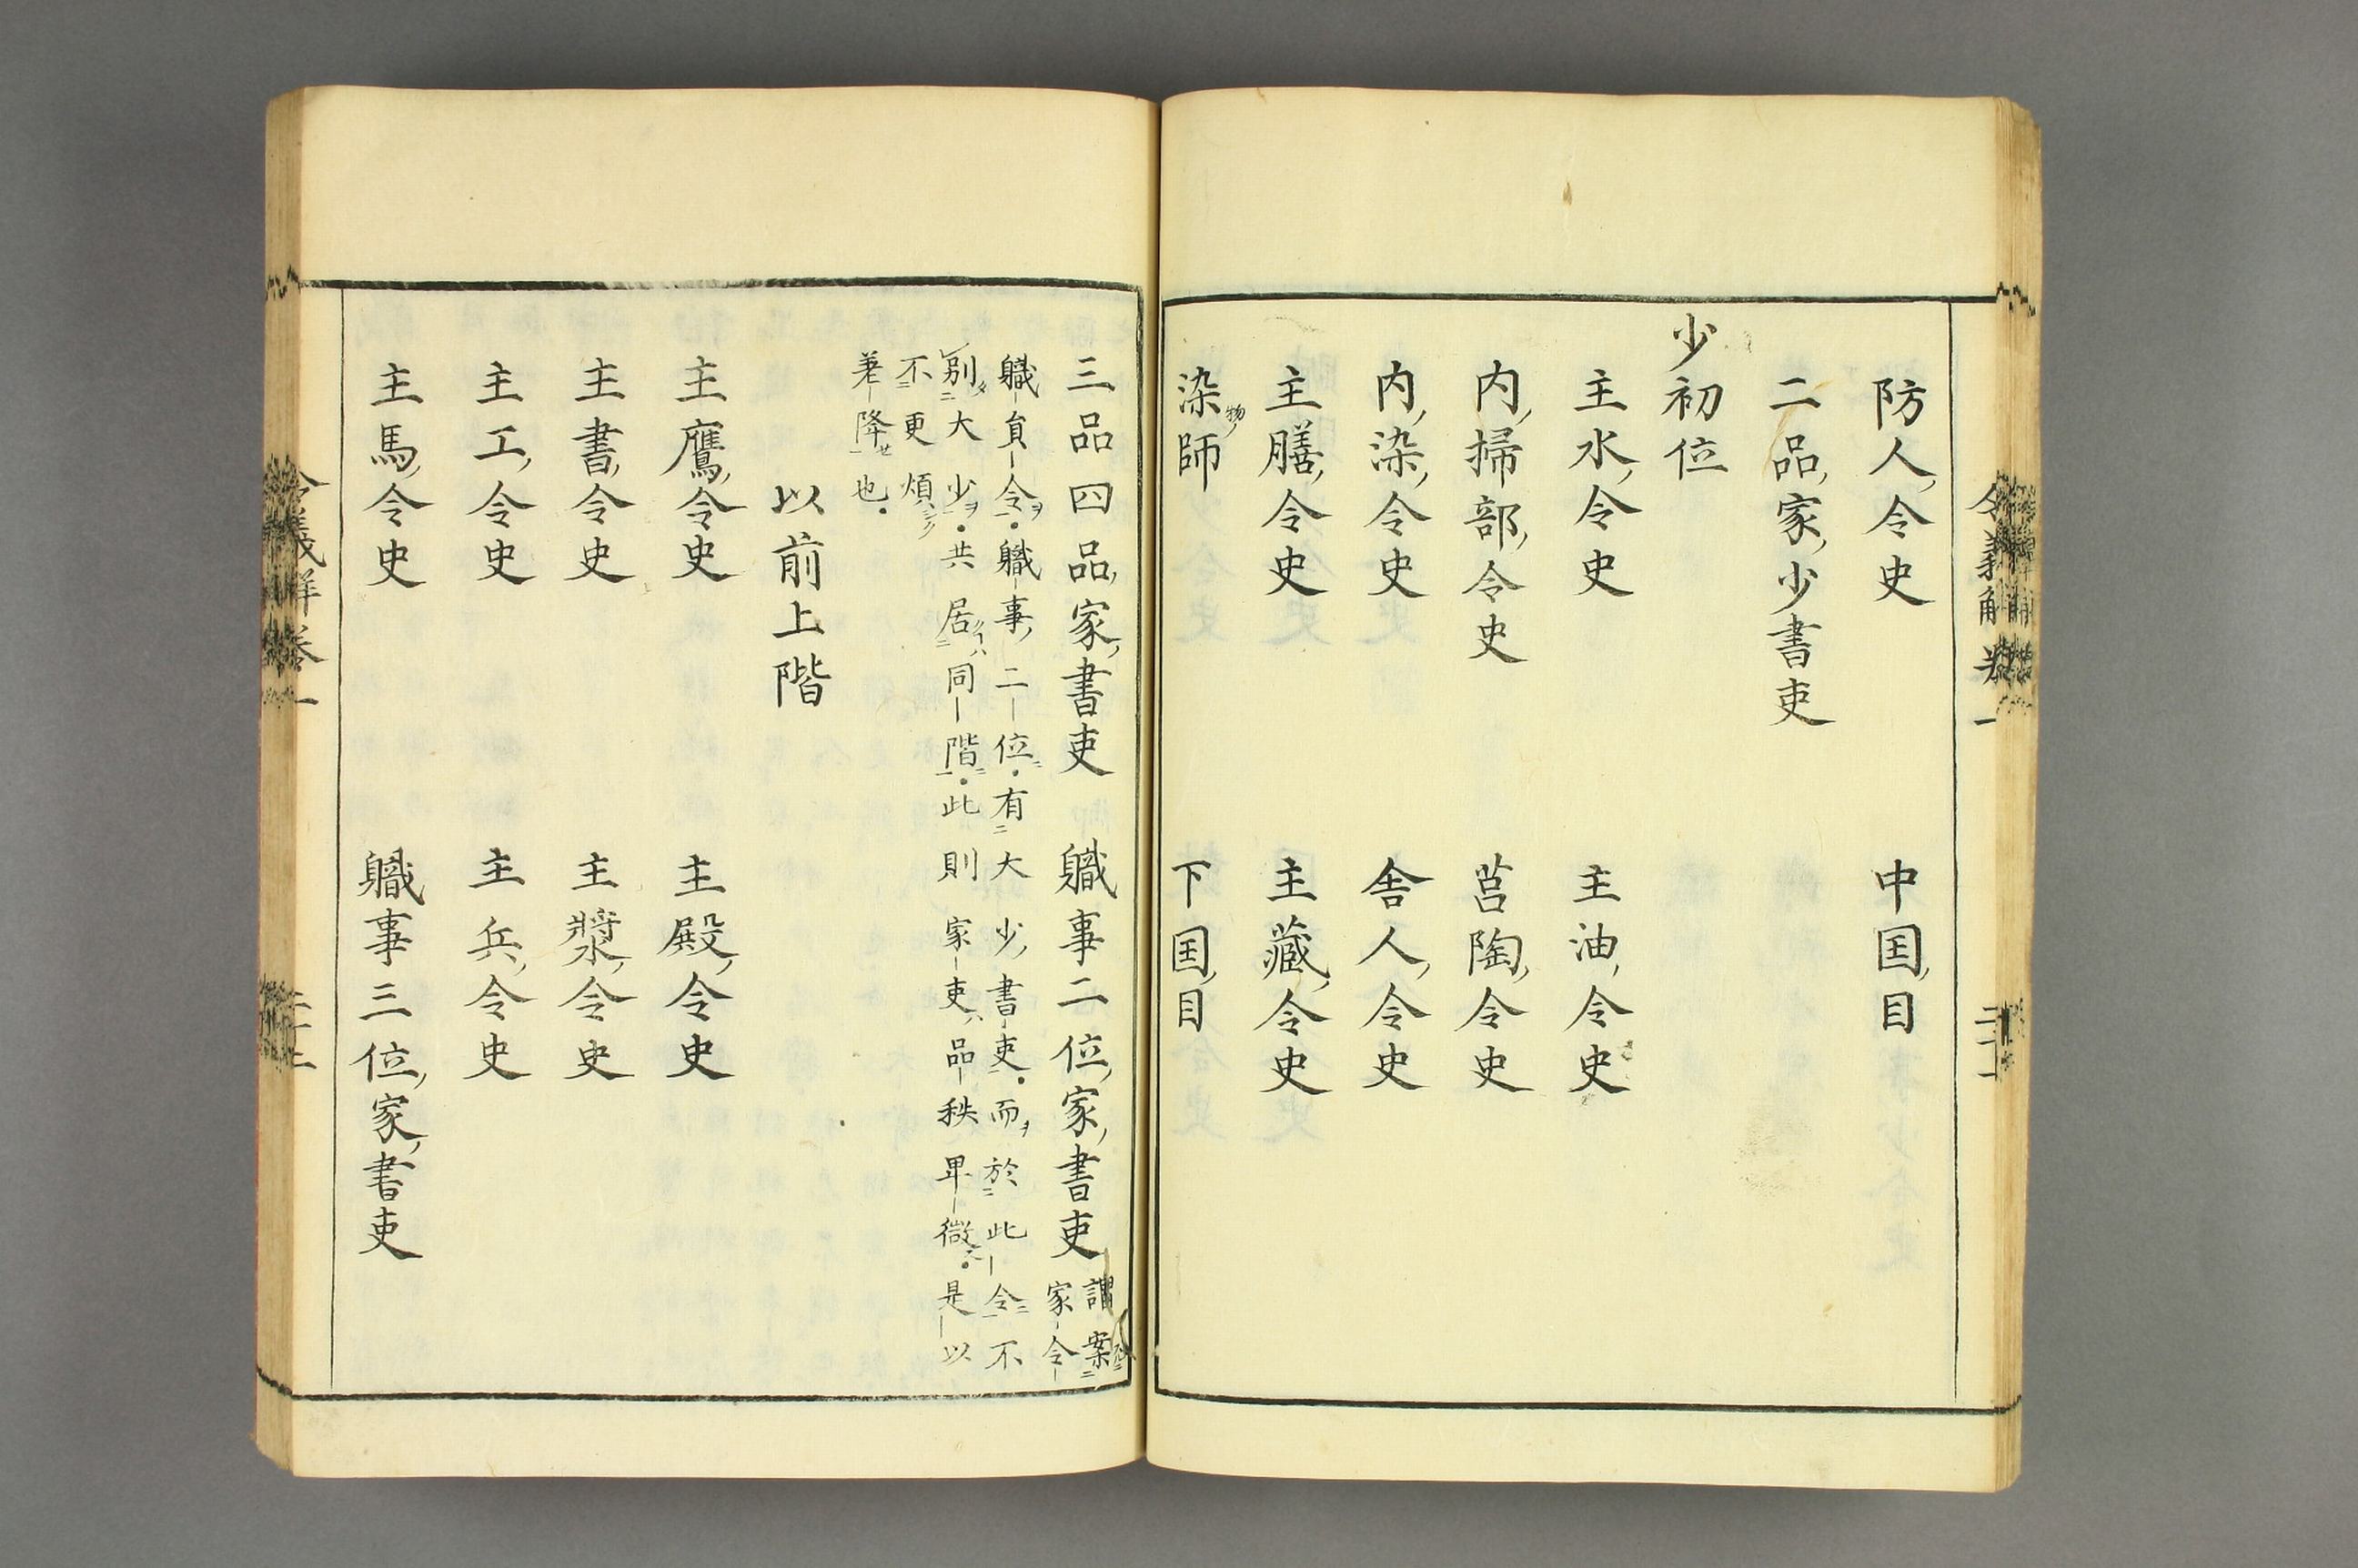 防人令史 中国目
二品家少書吏
少初位
主水令史 主油令史
内掃部令史 筥陶令史
内染令史 舎人令史
主膳令史 主藏令史
染物師 下国目
三品四品家書吏 軄事二位家書吏 謂案
家令
軄貟令軄事二位有大少書吏而於此令不
別大少共居同階此則家吏品秩卑微是以
不更煩
差降也
以前上階
主鷹令史 主殿令史
主書令史 主漿令史
主工令史 主兵令史
主馬令史 軄事三位家書吏
令義解卷一